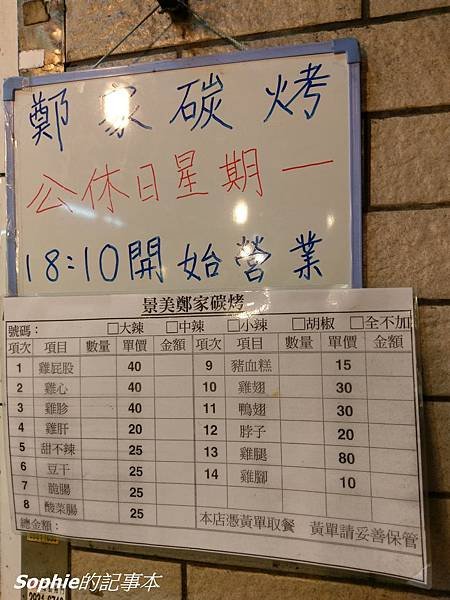 鄭家碳烤
公休日星期一
18:10開始營業
景美鄭家碳烤
號碼： □大辣 □中辣 □小辣 □胡椒 □全不加
項次 項目 數量 單價 金額 項次 項目 數量 單價 金額
1 雞屁股 40 9 豬血糕 15
2 雞心 40 10 雞翅 30
3 雞胗 40 11 鴨翅 30
4 雞肝 20 12 脖子 20
5 甜不辣 25 13 雞腿 80
6 豆干 25 14 雞腳 10
7 脆腸 25
8 酸菜腸 25 本店憑黃單取餐 黃單請妥善保管
總金額：
Sophie的記事本